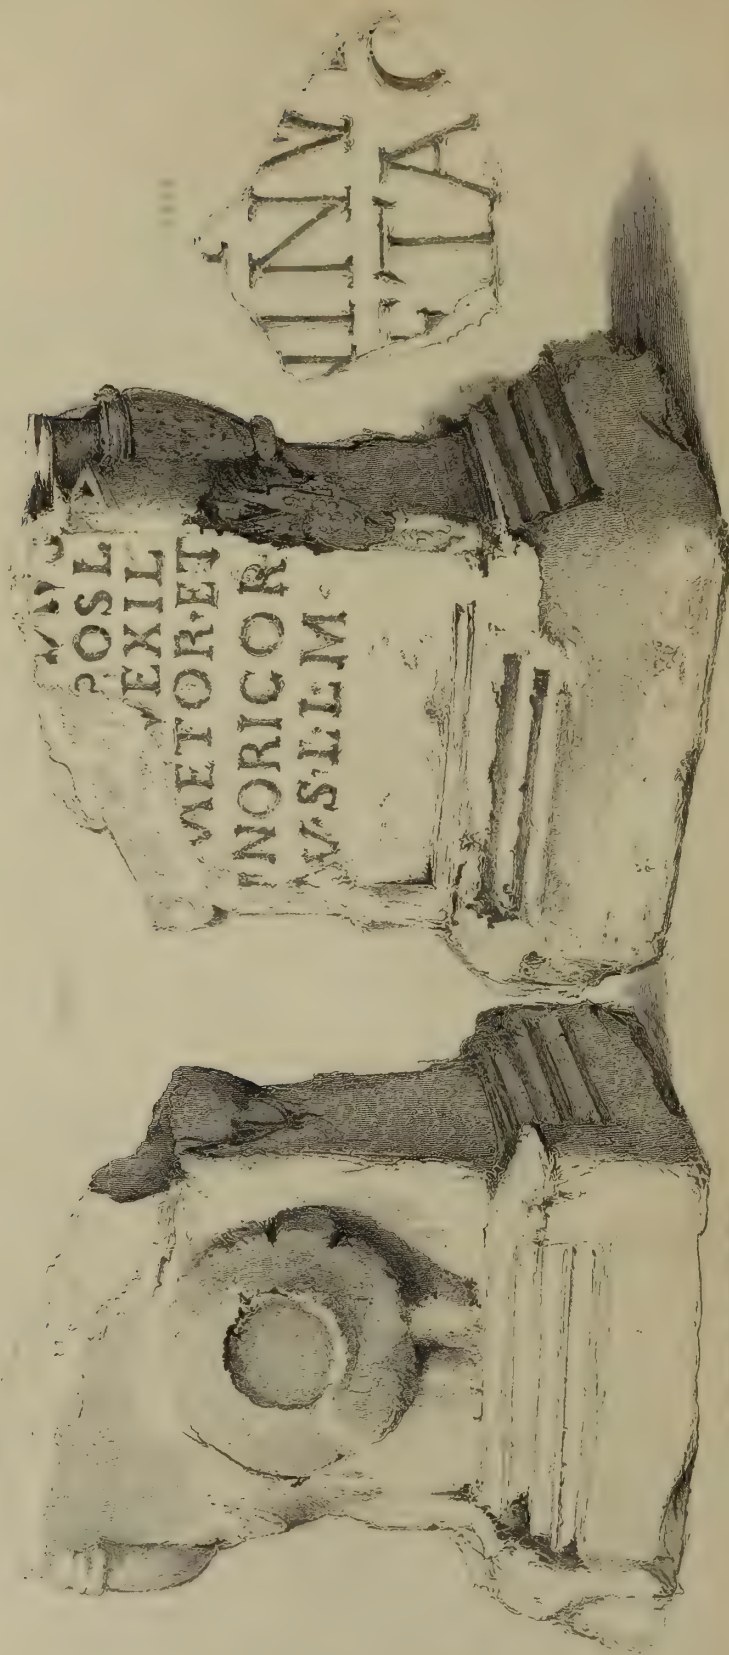 POSL
VEXIL
RETOR·ET
NORICOR
V·S·L·L·M·
INV
ETAC